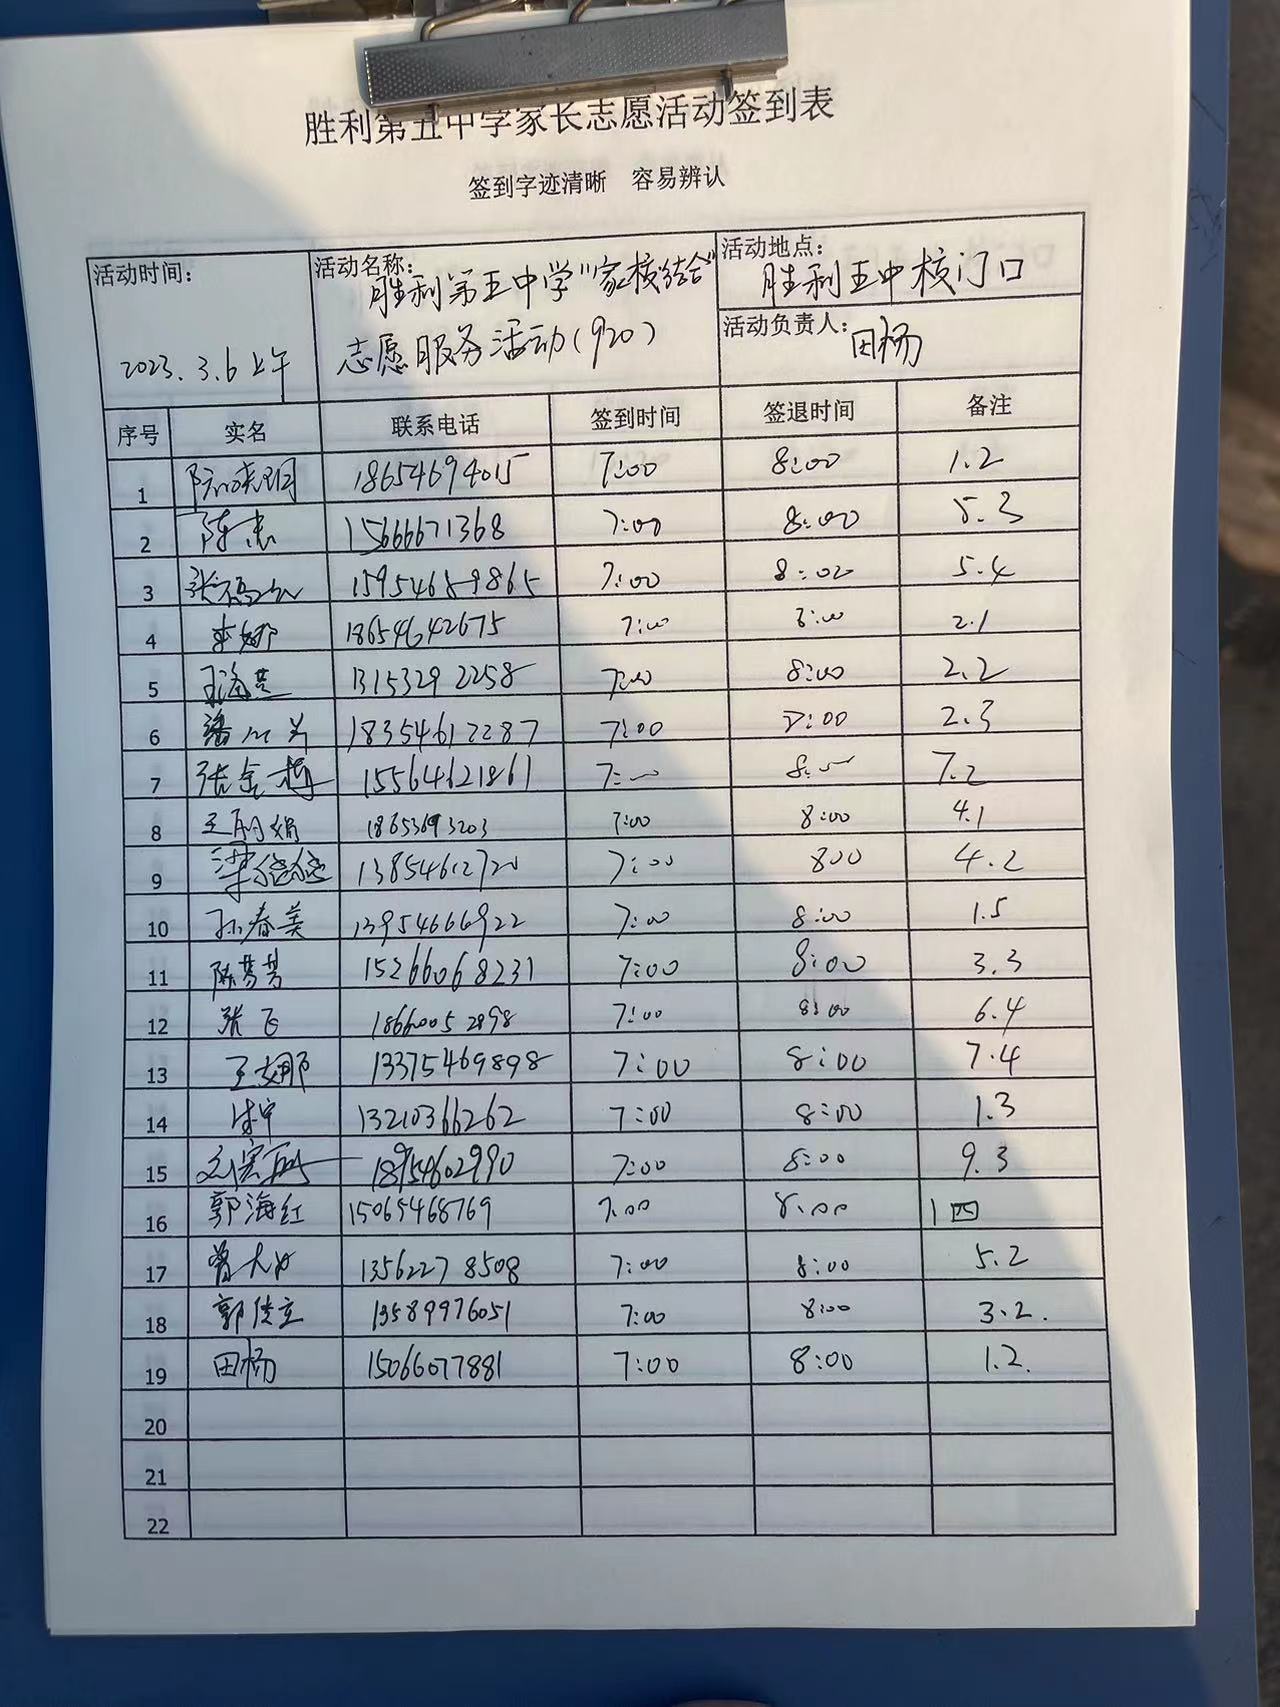 胜利第五中学家长志愿活动签到表
签到字迹清晰 容易辨认
活动时间: 2023.3.6上午
活动名称: 胜利第五中学"家校结合"
志愿服务活动(920)
活动地点: 胜利五中校门口
活动负责人: 田杨
序号 实名 联系电话 签到时间 签退时间 备注
1 18654694015 7:00 8:00 1.2
2 陈志 15666671368 7:00 8:00 5.3
3 15954689865 7:00 8:00 5.4
4 李娜 18654642675 7:00 8:00 2.1
5 13153292258 7:00 8:00 2.2
6 18354612287 7:00 8:00 2.3
7 张金梅 15564621861 7:00 8:00 7.2
8 王丽娟 18653693203 7:00 8:00 4.1
9 13854612720 7:00 800 4.2
10 孙春美 13954666922 7:00 8:00 1.5
11 陈芳芳 15266068231 7:00 8:00 3.3
12 张飞 18660052898 7:00 8:00 6.4
13 王娜 13375469898 7:00 8:00 7.4
14 13210366262 7:00 8:00 1.3
15 18954602990 7:00 8:00 9.3
16 郭海红 15065468769 7:00 8:00 1四
17 13562278508 7:00 8:00 5.2
18 郭传立 13589976051 7:00 8:00 3.2.
19 田杨 15066077881 7:00 8:00 1.2.
20
21
22